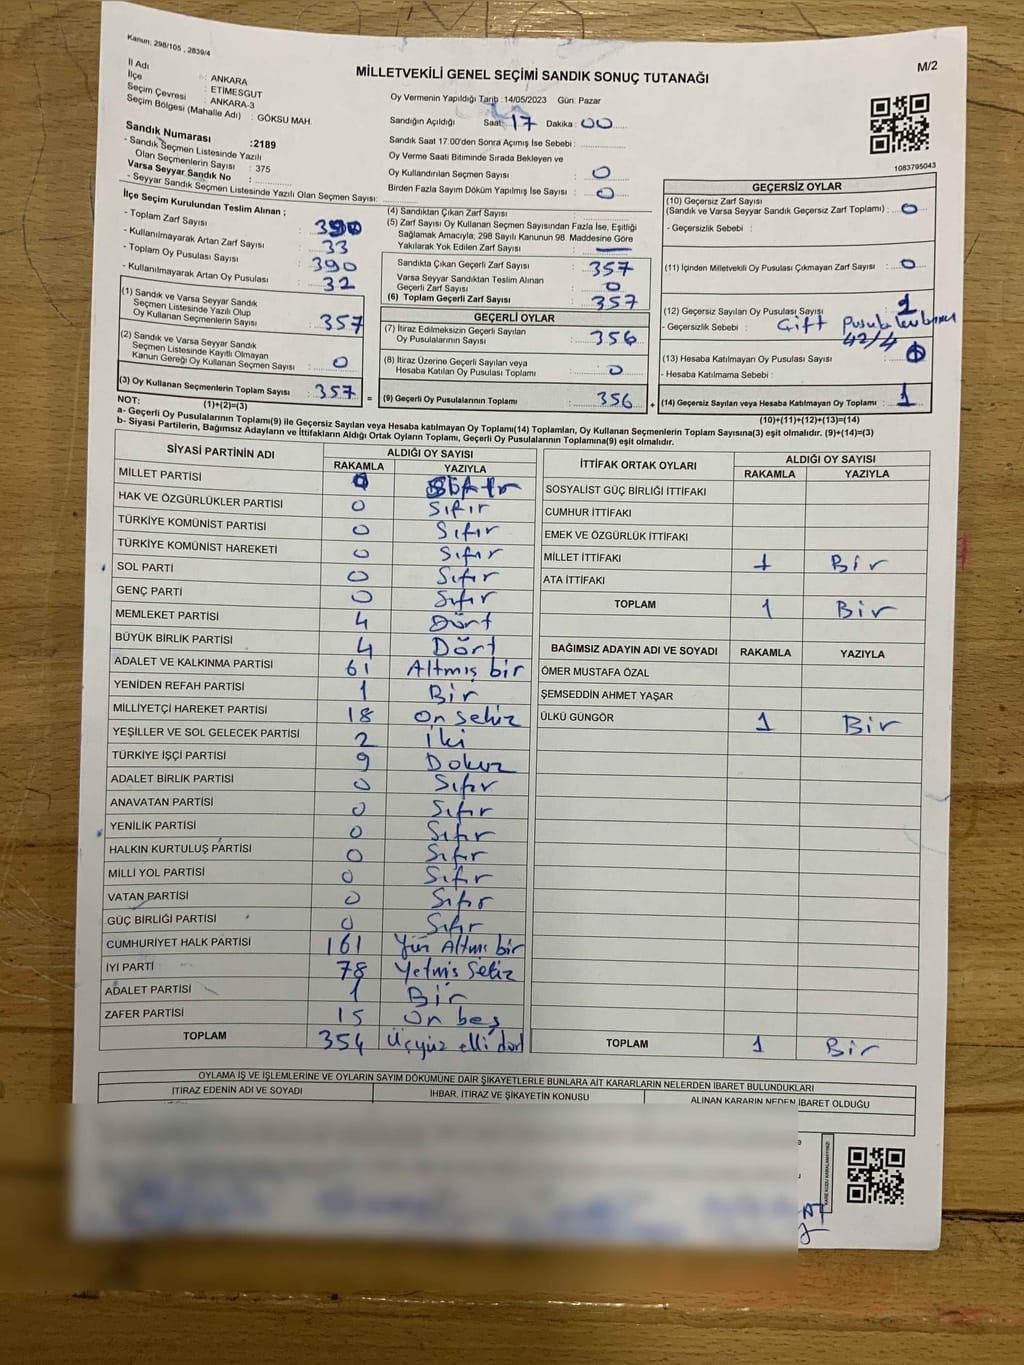 Kanun: 298/105 , 2839/4
M/2
MİLLETVEKİLİ GENEL SEÇİMİ SANDIK SONUÇ TUTANAĞI
İl Adı : ANKARA
İlçe : ETİMESGUT
Seçim Çevresi : ANKARA-3
Seçim Bölgesi (Mahalle Adı) : GÖKSU MAH.
Sandık Numarası :2189
- Sandık Seçmen Listesinde Yazılı
Olan Seçmenlerin Sayısı : 375
Varsa Seyyar Sandık No :
- Seyyar Sandık Seçmen Listesinde Yazılı Olan Seçmen Sayısı:
Oy Vermenin Yapıldığı Tarih :14/05/2023 Gün: Pazar
Sandığın Açıldığı Saat: 17 Dakika : 00
Sandık Saat 17.00'den Sonra Açımış İse Sebebi :
Oy Verme Saati Bitiminde Sırada Bekleyen ve
Oy Kullandırılan Seçmen Sayısı : 0
Birden Fazla Sayım Döküm Yapılmış İse Sayısı : 0
1083795043
İlçe Seçim Kurulundan Teslim Alınan ;
- Toplam Zarf Sayısı : 390
- Kullanılmayarak Artan Zarf Sayısı : 33
- Toplam Oy Pusulası Sayısı : 390
- Kullanılmayarak Artan Oy Pusulası : 32
(1) Sandık ve Varsa Seyyar Sandık
Seçmen Listesinde Yazılı Olup
Oy Kullanan Seçmenlerin Sayısı : 357
(2) Sandık ve Varsa Seyyar Sandık
Seçmen Listesinde Kayıtlı Olmayan
Kanun Gereği Oy Kullanan Seçmen Sayısı : 0
(3) Oy Kullanan Seçmenlerin Toplam Sayısı : 357
(1)+(2)=(3)
(4) Sandıktan Çıkan Zarf Sayısı :
(5) Zarf Sayısı Oy Kullanan Seçmen Sayısından Fazla İse, Eşitliği
Sağlamak Amacıyla; 298 Sayılı Kanunun 98. Maddesine Göre
Yakılarak Yok Edilen Zarf Sayısı : —
Sandıkta Çıkan Geçerli Zarf Sayısı : 357
Varsa Seyyar Sandıktan Teslim Alınan
Geçerli Zarf Sayısı : 0
(6) Toplam Geçerli Zarf Sayısı : 357
GEÇERLİ OYLAR
(7) İtiraz Edilmeksizin Geçerli Sayılan
Oy Pusulalarının Sayısı : 356
(8) İtiraz Üzerine Geçerli Sayılan veya
Hesaba Katılan Oy Pusulası Toplamı : 0
= (9) Geçerli Oy Pusulalarının Toplamı : 356
GEÇERSİZ OYLAR
(10) Geçersiz Zarf Sayısı
(Sandık ve Varsa Seyyar Sandık Geçersiz Zarf Toplamı) : 0
- Geçersizlik Sebebi :
(11) İçinden Milletvekili Oy Pusulası Çıkmayan Zarf Sayısı : 0
(12) Geçersiz Sayılan Oy Pusulası Sayısı : 1
- Geçersizlik Sebebi : Çift pusula
42/4
(13) Hesaba Katılmayan Oy Pusulası Sayısı :
- Hesaba Katılmama Sebebi :
+ (14) Geçersiz Sayılan veya Hesaba Katılmayan Oy Pusulası Toplamı : 1
(10)+(11)+(12)+(13)=(14)
NOT:
a- Geçerli Oy Pusulalarının Toplamı(9) ile Geçersiz Sayılan veya Hesaba katılmayan Oy Toplamı(14) Toplamları, Oy Kullanan Seçmenlerin Toplam Sayısına(3) eşit olmalıdır. (9)+(14)=(3)
b- Siyasi Partilerin, Bağımsız Adayların ve İttifakların Aldığı Ortak Oyların Toplamı, Geçerli Oy Pusulalarının Toplamına(9) eşit olmalıdır.
SİYASİ PARTİNİN ADI ALDIĞI OY SAYISI
RAKAMLA YAZIYLA
MİLLET PARTİSİ 0 Sıfır
HAK VE ÖZGÜRLÜKLER PARTİSİ 0 Sıfır
TÜRKİYE KOMÜNİST PARTİSİ 0 Sıfır
TÜRKİYE KOMÜNİST HAREKETİ 0 Sıfır
SOL PARTİ 0 Sıfır
GENÇ PARTİ 0 Sıfır
MEMLEKET PARTİSİ 4 Dört
BÜYÜK BİRLİK PARTİSİ 4 Dört
ADALET VE KALKINMA PARTİSİ 61 Altmış bir
YENİDEN REFAH PARTİSİ 1 Bir
MİLLİYETÇİ HAREKET PARTİSİ 18 On sekiz
YEŞİLLER VE SOL GELECEK PARTİSİ 2 İki
TÜRKİYE İŞÇİ PARTİSİ 9 Dokuz
ADALET BİRLİK PARTİSİ 0 Sıfır
ANAVATAN PARTİSİ 0 Sıfır
YENİLİK PARTİSİ 0 Sıfır
HALKIN KURTULUŞ PARTİSİ 0 Sıfır
MİLLİ YOL PARTİSİ 0 Sıfır
VATAN PARTİSİ 0 Sıfır
GÜÇ BİRLİĞİ PARTİSİ 0 Sıfır
CUMHURİYET HALK PARTİSİ 161 Yüz Altmı bir
İYİ PARTİ 78 Yetmis Sekiz
ADALET PARTİSİ 1 Bir
ZAFER PARTİSİ 15 On beş
TOPLAM 354 Üçyüz elli dört
İTTİFAK ORTAK OYLARI ALDIĞI OY SAYISI
RAKAMLA YAZIYLA
SOSYALİST GÜÇ BİRLİĞİ İTTİFAKI
CUMHUR İTTİFAKI
EMEK VE ÖZGÜRLÜK İTTİFAKI
MİLLET İTTİFAKI 1 Bir
ATA İTTİFAKI
TOPLAM 1 Bir
BAĞIMSIZ ADAYIN ADI VE SOYADI RAKAMLA YAZIYLA
ÖMER MUSTAFA ÖZAL
ŞEMSEDDİN AHMET YAŞAR
ÜLKÜ GÜNGÖR 1 Bir
TOPLAM 1 Bir
OYLAMA İŞ VE İŞLEMLERİNE VE OYLARIN SAYIM DÖKÜMÜNE DAİR ŞİKAYETLERLE BUNLARA AİT KARARLARIN NELERDEN İBARET BULUNDUKLARI
İTİRAZ EDENİN ADI VE SOYADI İHBAR, İTİRAZ VE ŞİKAYETİN KONUSU ALINAN KARARIN NEDEN İBARET OLDUĞU